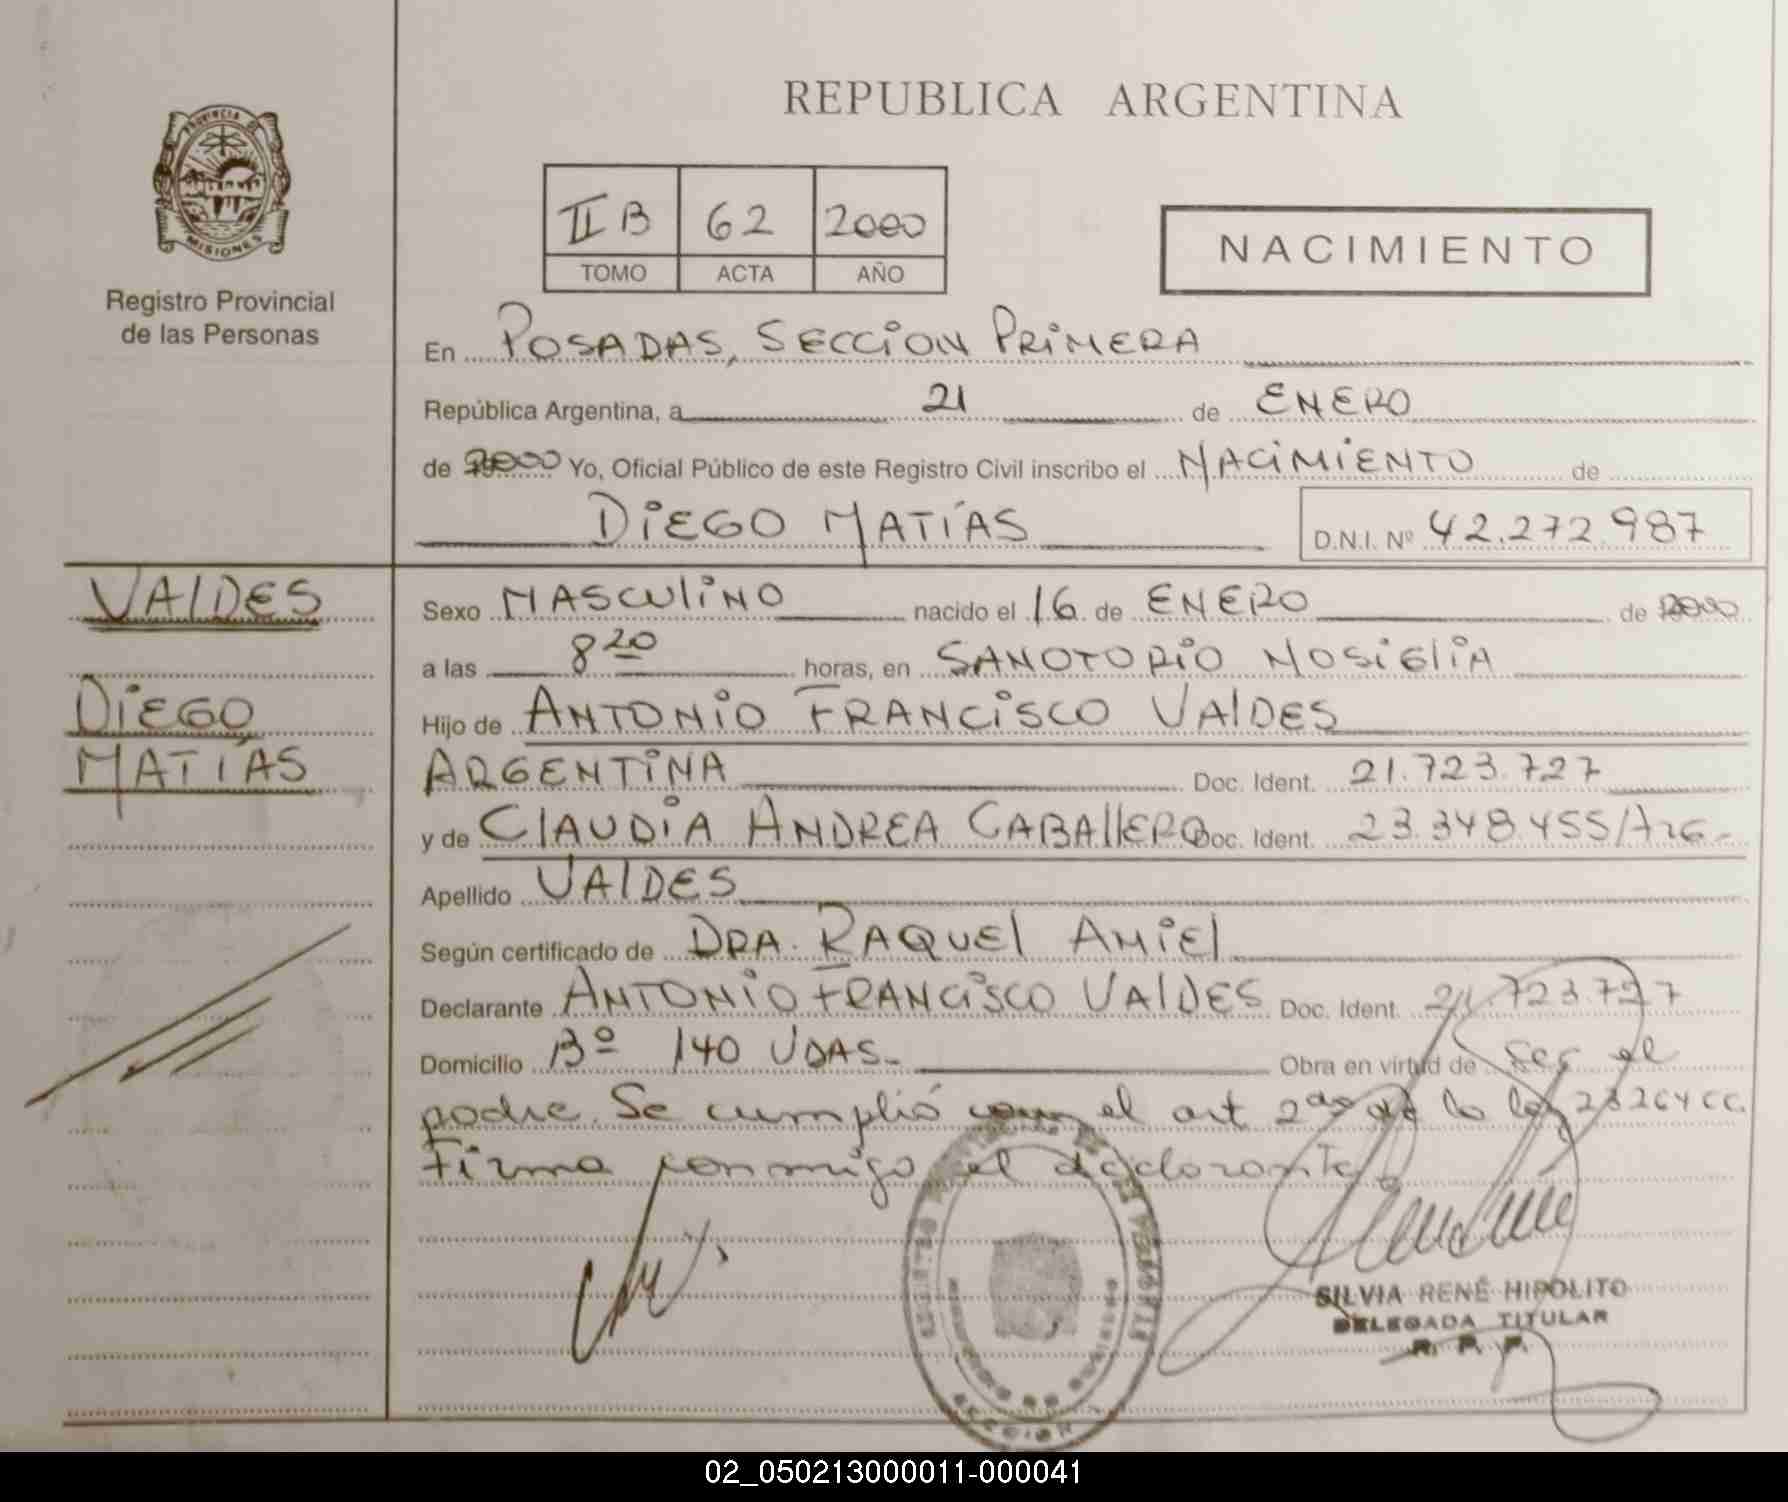 REPUBLICA ARGENTINA
PROVINCIA DE
MISIONES
Registro Provincial
de las Personas
II B 62 2000
TOMO ACTA AÑO
NACIMIENTO
En POSADAS, SECCION PRIMERA
República Argentina, a 21 de ENERO
de 2000 Yo, Oficial Público de este Registro Civil inscribo el NACIMIENTO de
DIEGO MATÍAS
D.N.I. Nº 42.272.987
VALDES
DIEGO
MATÍAS
Sexo MASCULINO nacido el 16 de ENERO de 2000
a las 8 20 horas, en SANOTORIO MOSIGLIA
Hijo de ANTONIO FRANCISCO VALDES
ARGENTINA Doc. Ident. 21.723.727
y de CLAUDIA ANDREA CABALLERO Doc. Ident. 23.348.455/ARG.-
Apellido VALDES
Según certificado de DRA. RAQUEL AMIEL
Declarante ANTONIO FRANCISCO VALDES Doc. Ident. 21.723.727
Domicilio Bº 140 VDAS.- Obra en virtud de ser el
padre. Se cumplió con el art 2do de la ley 23264 CC.
Firma conmigo el declarante
SILVIA RENÉ HIPOLITO
DELEGADA TITULAR
R. P. P.
02_050213000011-000041